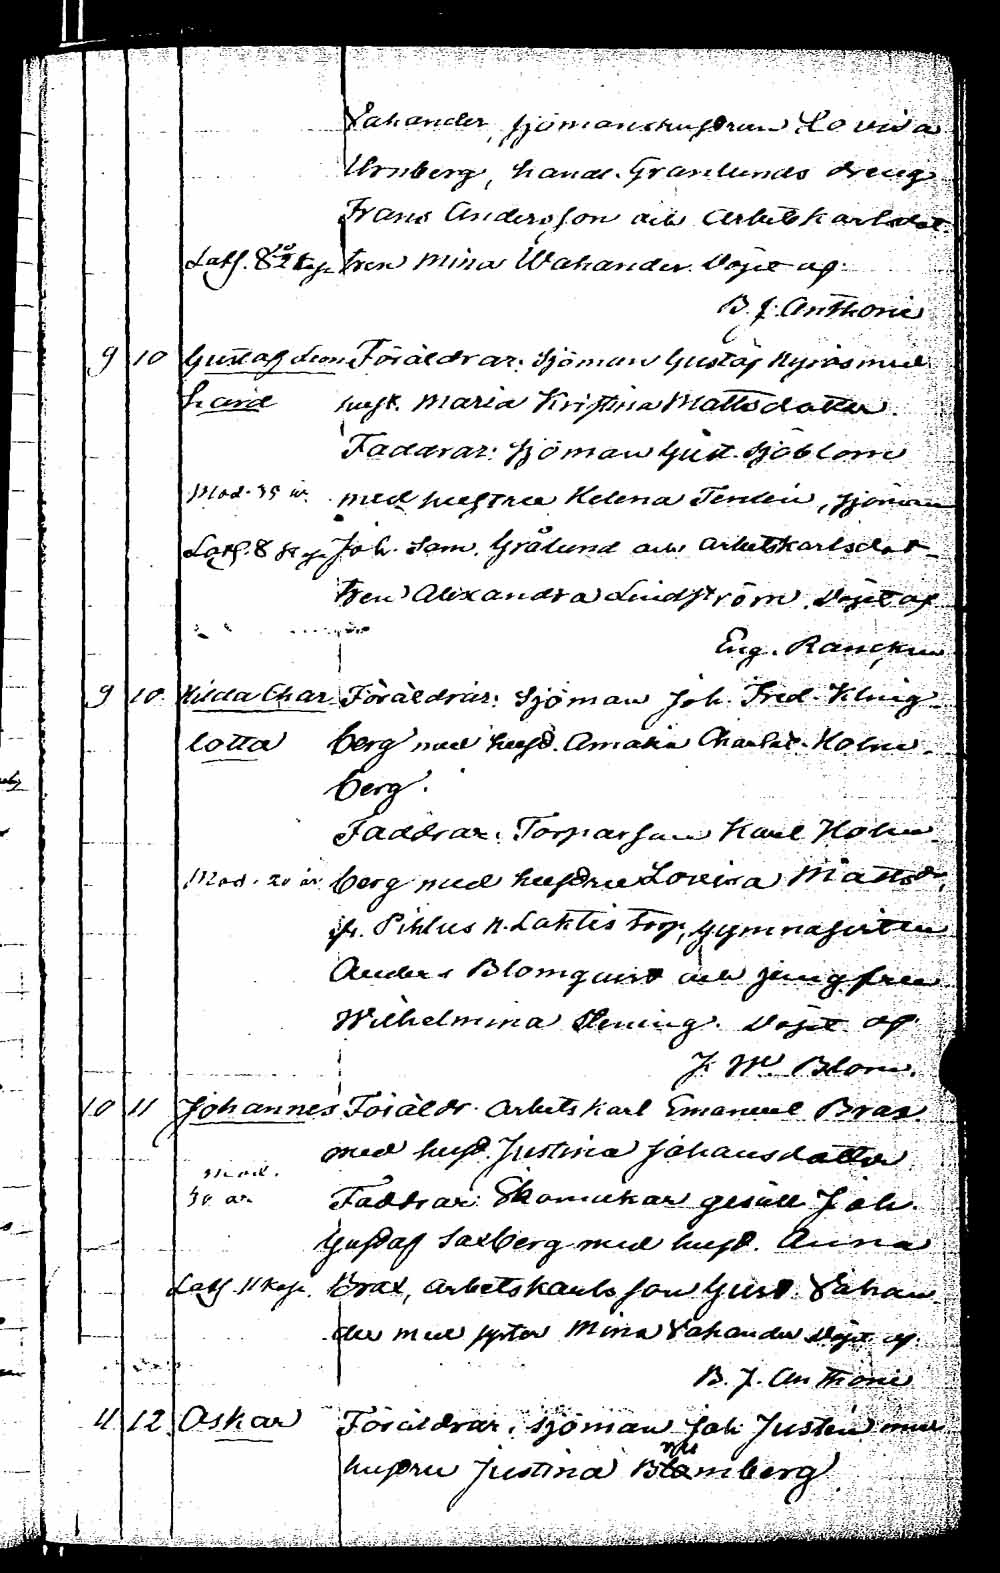 Vahander, sjömanshustrun Lovisa
Urnberg, handl. Granlunds dreng
Frans Andersson och arbetskarlsdot-
tren Mina Wahander. Döpt af
B. J. Anthoni
9 10 Gustaf Leon- Föräldrar: Sjöman Gustaf Nyros med
hard hust. Maria Kristina Mattsdotter.
Faddrar: Sjöman Gust. Sjöblom
Mod. 35 år. med hustru Helena Tenlén, sjöman
Joh. Sam. Grålund och arbetskarlsdot-
tren Alexandra Lindström. Döpt af
Eng. Rancken
9 10 Hilda Char- Föräldrar: Sjöman Joh. Fred. Kling-
lotta berg med hust. Amalia Charlot. Holm-
berg.
Faddrar: Torparson Karl Holm-
Mod. 20 år berg med hustru Lovisa Mattsdr,
fr. Pihlus n. Laktis torp, gymnasisten
Anders Blomqvist och jungfru
Wilhelmina Hening. Döpt af
J. W. Blom.
10 11 Johannes Föräldr. arbetskarl Emanuel Brax
med hust. Justina Johansdotter
Mod.
30 år Faddrar: Skomakar gesäll Joh.
Gustaf Saxberg med hust. Anna
Brax, arbetskarlsson Gust. Vahan-
der med syster Mina Vahander Döpt af
B. J. Anthoni
11 12 Oskar Föräldrar: sjöman Joh Justén med
hustru Justina Blomberg